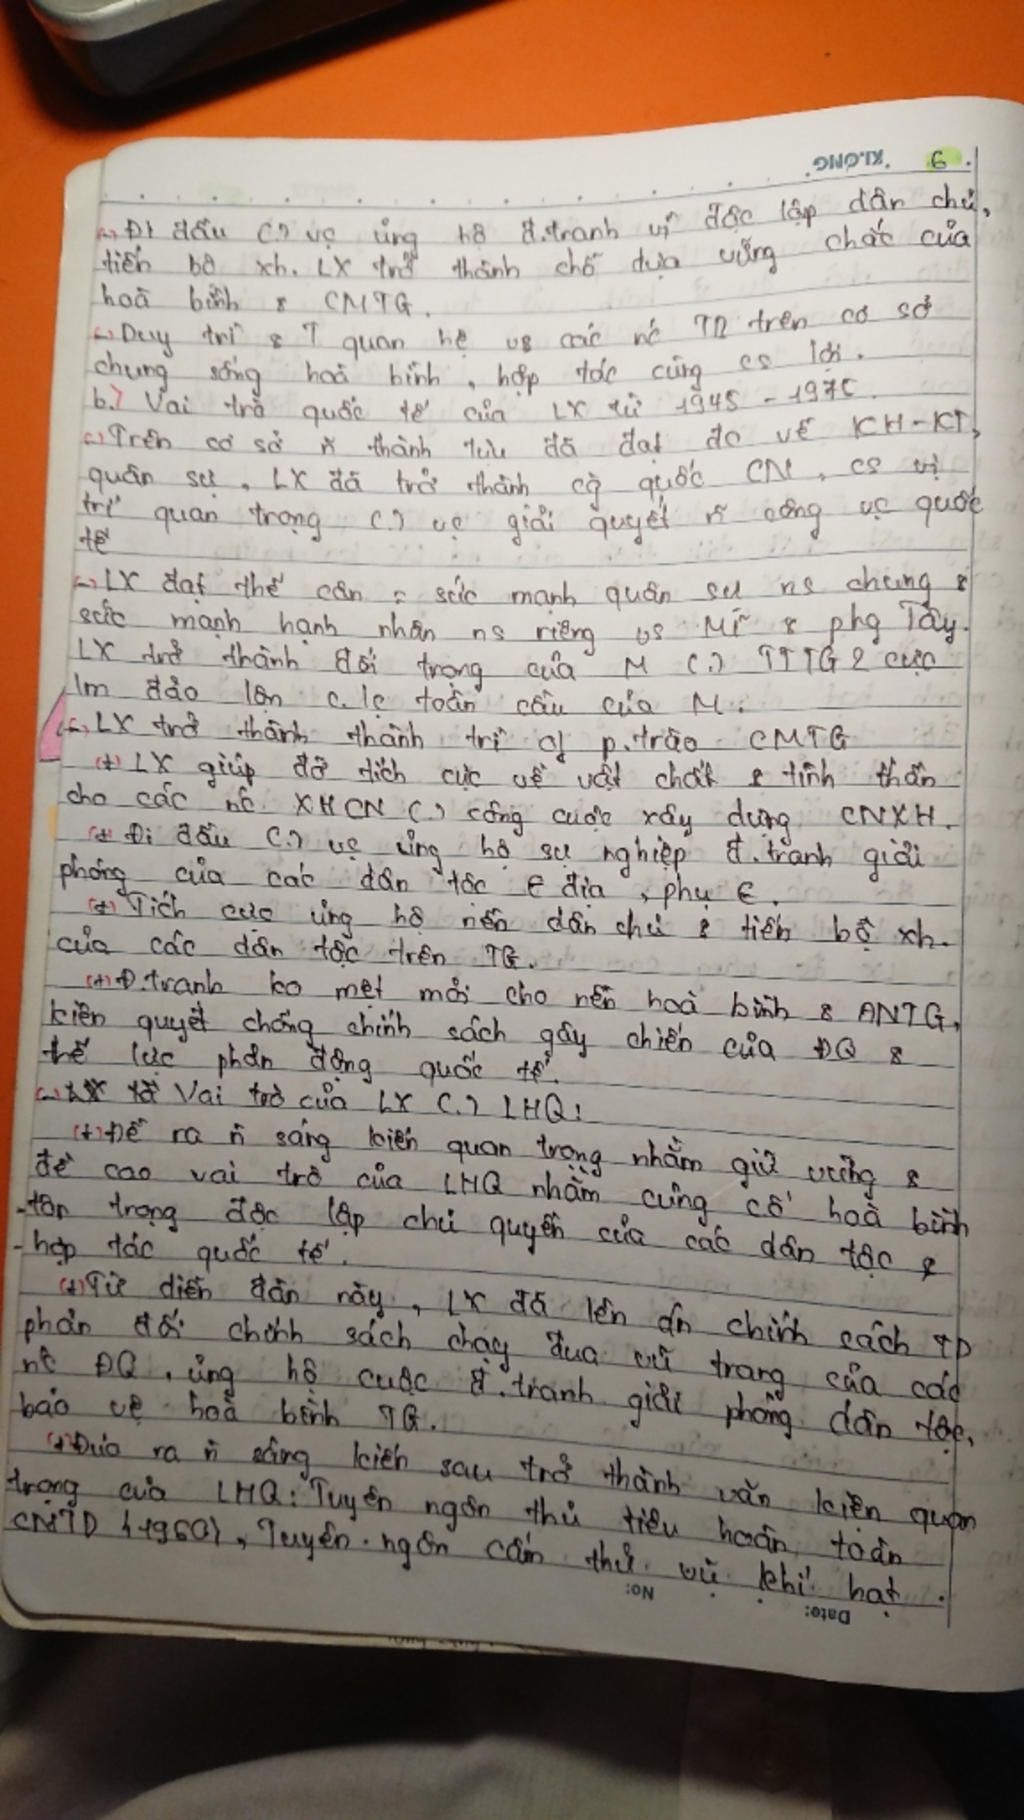 KLONG 6
(-) Đi đầu (.) vc ủng hộ đ.tranh vì độc lập dân chủ,
tiến bộ xh. LX trở thành chỗ dựa vững chắc của
hoà bình & CMTG.
(-) Duy trì & quan hệ vs các nc TB trên cơ sở
chung sống hoà bình, hợp tác cùng cs lợi.
b.) Vai trò quốc tế của LX từ 1945 - 1975
(-) Trên cơ sở n̄ thành tựu đã đạt đc về KH-KT,
quân sự, LX đã trở thành quốc CN, cs vị
trí quan trọng (.) vc giải quyết n̄ công vc quốc
tế
(-) LX đạt thế cân = sức mạnh quân sự ns chung &
sức mạnh hạnh nhân ns riêng vs Mĩ & phg Tây.
LX trở thành đối trọng của M (.) TTTG 2 cực
lm đảo lộn c.lc toàn cầu của M.
(-) LX trở thành thành trì p.trào CMTG
(+) LX giúp đỡ tích cực về vật chất & tinh thần
cho các nc XHCN (.) công cuộc xây dựng CNXH.
(+) Đi đầu (.) vc ủng hộ sự nghiệp đ.tranh giải
phóng của các dân tộc € địa, phụ €.
(+) Tích cực ủng hộ nền dân chủ & tiến bộ xh
của các dân tộc trên TG.
(+) Đ.tranh ko mệt mỏi cho nền hoà bình & ANTG,
kiên quyết chống chính sách gây chiến của ĐQ &
thế lực phản động quốc tế.
(-) Vai trò của LX (.) LHQ:
(+) Đề ra n̄ sáng kiến quan trọng nhằm giữ vững &
đề cao vai trò của LHQ nhằm củng cố hoà bình
- tôn trọng độc lập chủ quyền của các dân tộc &
- hợp tác quốc tế.
(+) Từ diễn đàn này, LX đã lên án chính sách
phản đối chính sách chạy đua vũ trang của các
nc ĐQ, ủng hộ cuộc đ.tranh giải phóng dân tộc,
bảo vệ hoà bình TG.
(+) Đưa ra n̄ sáng kiến sau trở thành văn kiện quan
trọng của LHQ: Tuyên ngôn thủ tiêu hoàn toàn
CNTD (1960), Tuyên ngôn cấm thử vũ khí hạt
No:
Date: